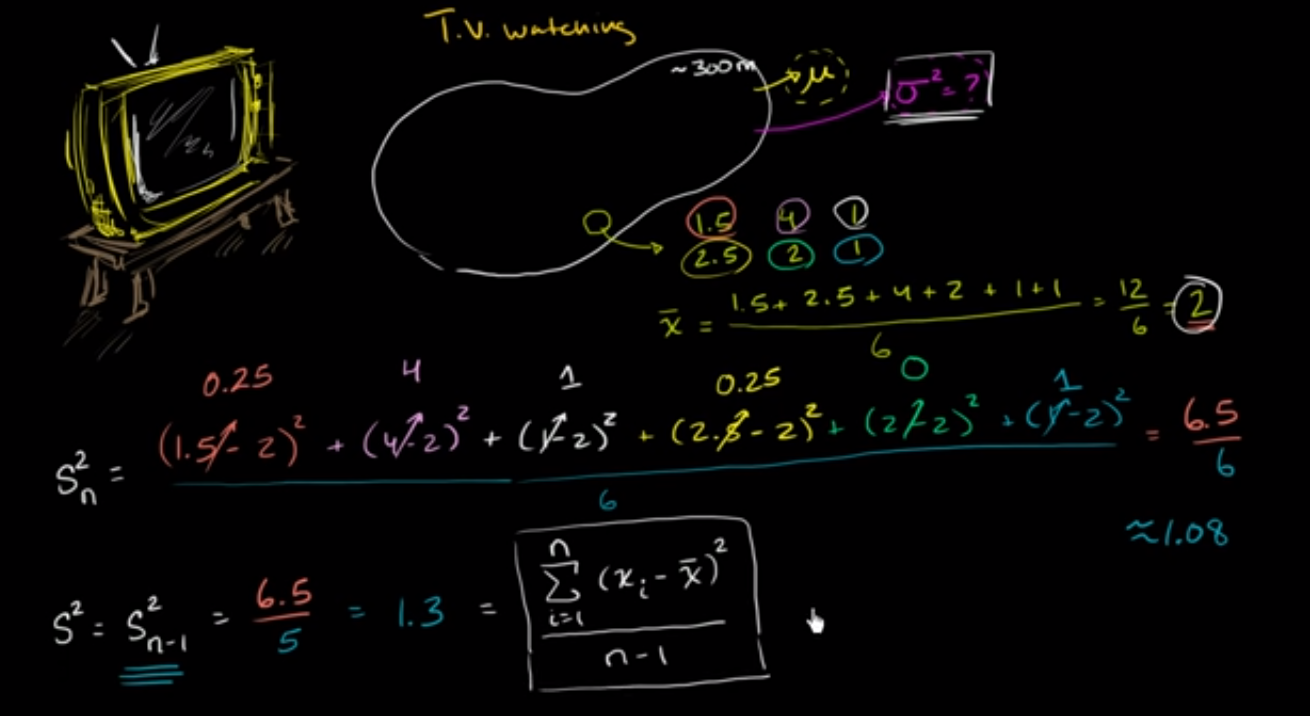 T.V. watching
~300m
μ
σ² = ?
1.5 4 1
2.5 2 1
x̄ = (1.5 + 2.5 + 4 + 2 + 1 + 1)/6 = 12/6 = 2
0.25 4 1 0.25 0 1
Sₙ² = ((1.5 - 2)² + (4 - 2)² + (1 - 2)² + (2.5 - 2)² + (2 - 2)² + (1 - 2)²)/6 = 6.5/6
≈1.08
S² = Sₙ₋₁² = 6.5/5 = 1.3 = (∑ᵢ₌₁ⁿ (xᵢ - x̄)²)/(n - 1)